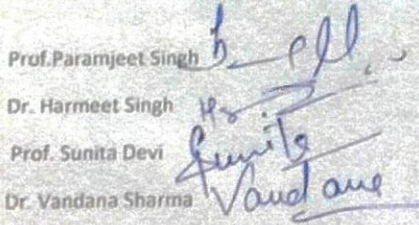 Prof.Paramjeet Singh
Dr. Harmeet Singh
Prof. Sunita Devi Sunita
Dr. Vandana Sharma Vandana